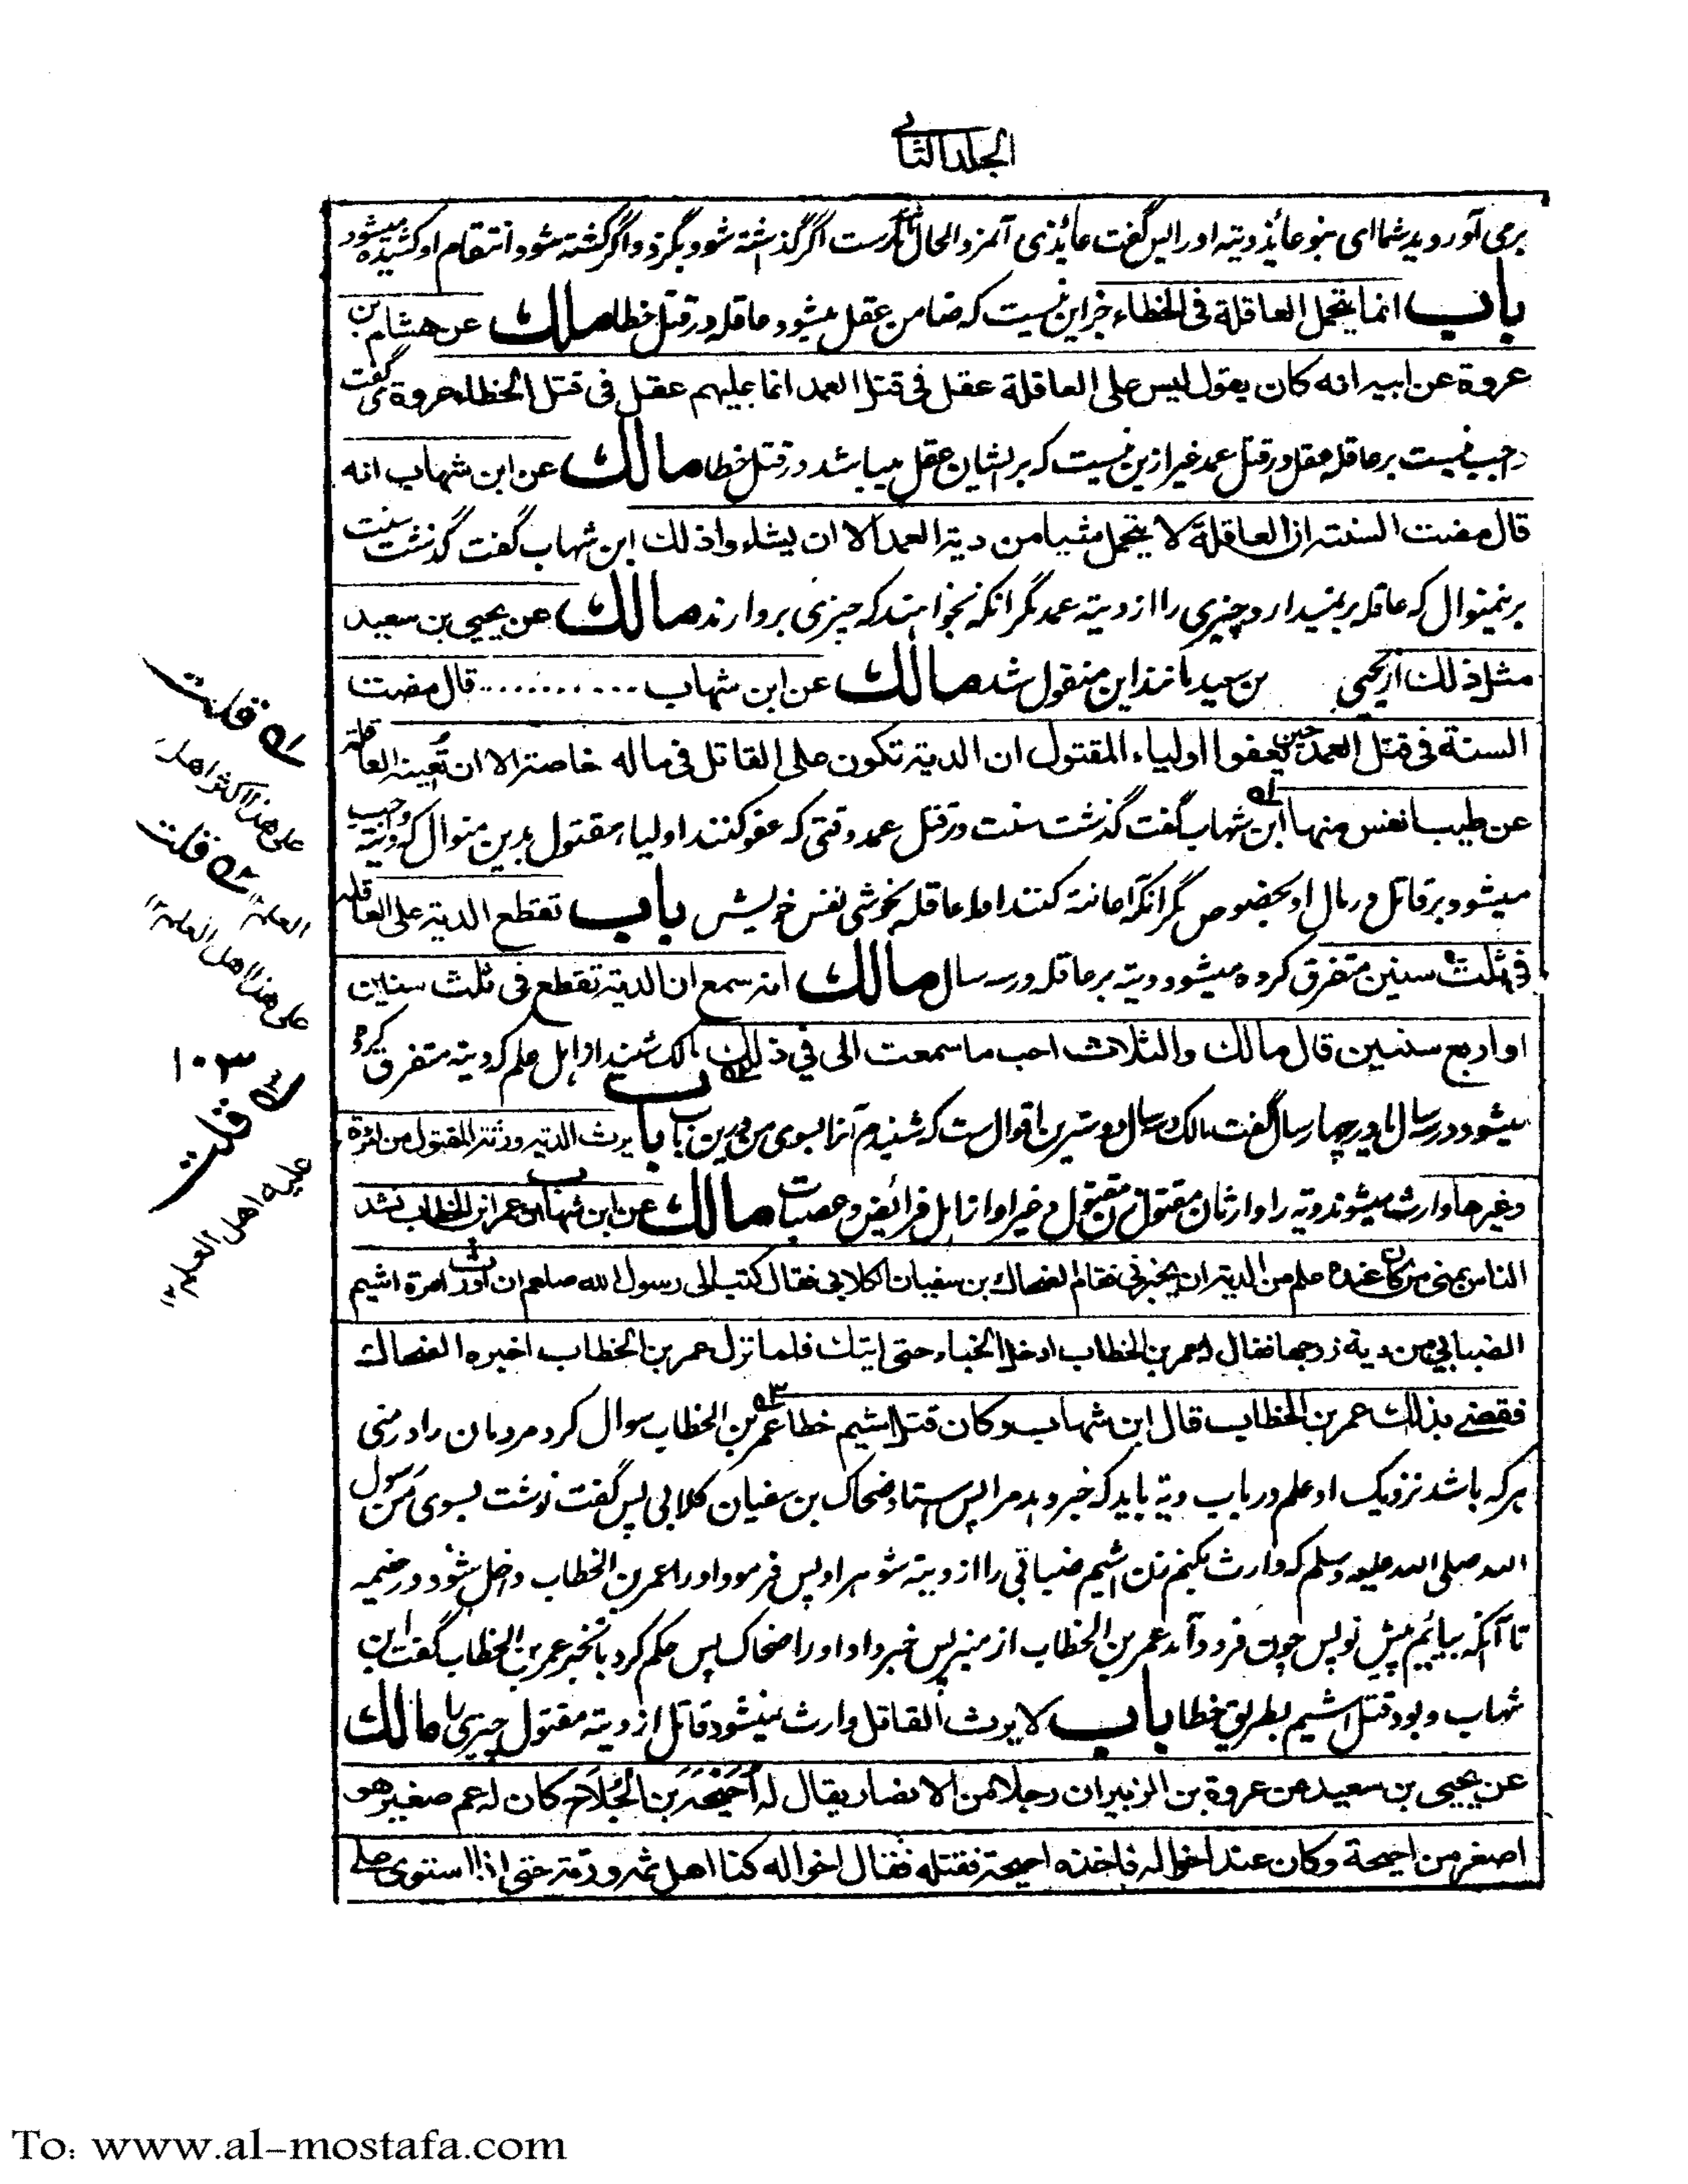 الجلد الثانی
برمی آوردید شما ای بنو عائذ دیته او را پس گفت عائذی آنمرد الحال مار ست اگر گذشته شود بگزد و اگر کشته شود انتقام او کشیده میشود
باب انما یتحمل العاقلة فی الخطاء جز این نیست که ضامن عقل میشود عاقله در قتل خطا مالك عن هشام بن
عروة عن ابیه انه کان یقول لیس علی العاقلة عقل فی قتل العمد انما علیهم عقل فی قتل الخطاء عروة می گفت
واجب نیست بر عاقله عقل در قتل عمد غیر ازین نیست که بر ایشان عقل میباشد در قتل خطا مالك عن ابن شهاب انه
قال مضت السنة ان العاقلة لا یتحمل شیأ من دیة العمد الا ان یشاء واذلك ابن شهاب گفت گذشت سنت
برینمنوال که عاقله بر نمیدارد چیزی را از دیته عمد مگر آنکه بخواهند که چیزی بردارند مالك عن یحیی بن سعید
مثل ذلك از یحیی بن سعید مانند این منقول شد مالك عن ابن شهاب ........... قال مضت
السنة فی قتل العمد حین یعفوا اولیاء المقتول ان الدیة تکون علی القاتل فی ماله خاصة الا ان تُعینه العاقلة
عن طیب نفس منها ابن شهاب گفت گذشت سنت در قتل عمد وقتی که عفو کنند اولیاء مقتول برین منوال که دیته واجب
میشود بر قاتل در مال او بخصوص مگر آنکه اعانة کنند او را عاقله بخوشی نفس خویش باب تقطع الدیة علی العاقلة
فی ثلث سنین متفرق کرده میشود دیته بر عاقله در سه سال مالك انه سمع ان الدیة تقطع فی ثلث سنین
او اربع سنین قال مالك والثلاث احب ما سمعت الی فی ذلك مالک شنید از اهل علم که دیته متفرق کرده
میشود در سه سال یا در چهار سال گفت مالک سه سال دوسترین اقوال ست که شنیدم آنرا بسوی من درین باب باب یرث الدیة ورثة المقتول من امرأة
وغیرها وارث میشوند دیته را وارثان مقتول زن مقتول و غیر او از اهل فرائض و عصبات مالك عن ابن شهاب ان عمر ابن الخطاب نشد
الناس بمنی من کان عنده علم من الدیة ان یخبرنی فقام الضحاك بن سفیان الکلابی فقال کتب الی رسول الله صلعم ان اورث امرة اشیم
الضبابی من دیة زوجها فقال له عمر بن الخطاب ادخل الخباء حتی اتیك فلما نزل عمر بن الخطاب اخبره الضحاك
فقضی بذلك عمر بن الخطاب قال ابن شهاب وکان قتل اشیم خطا عمر بن الخطاب سوال کرد مردمان را در منی
هر که باشد نزدیک او علم در باب دیة باید که خبر دهد مرا پس ایستاد ضحاک بن سفیان کلابی پس گفت نوشت بسوی من رسول
الله صلی الله علیه وسلم که وارث بکنم زن اشیم ضبابی را از دیته شوهر او پس فرمود او را عمر بن الخطاب داخل شو در خیمه
تا آنکه بیائیم پیش تو پس چون فرود آمد عمر بن الخطاب از منبر پس خبر داد او را ضحاک پس حکم کرد بآنخبر عمر بن الخطاب گفت ابن
شهاب و بود قتل اشیم بطریق خطا باب لا یرث القاتل وارث نمیشود قاتل از دیته مقتول چیزی را مالك
عن یحیی بن سعید عن عروة بن الزبیر ان رجلا من الانصار یقال له اُحَیْحَةَ بن الجُلَاح کان له عم صغیر هو
اصغر من احیحة وکان عند اخواله فاخذه احیحة فقتله فقال اخواله کنا اهل ثمه ورمته حتی اذا استوی علی
له قلت
علی هذا اکثر اهل
العلم
قلت
علی هذا اهل العلم
۱۰۳
قلت
علیه اهل العلم
To: www.al-mostafa.com